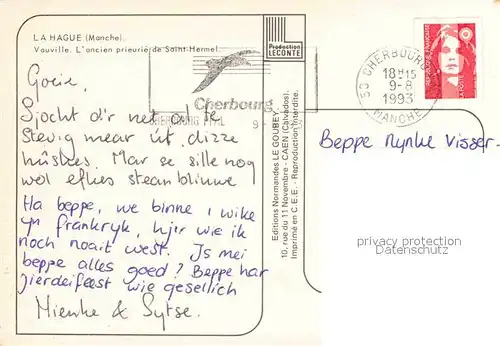 LA HAGUE (Manche).
Vauville. L'ancien prieuré de Saint-Hermel.
Production
LECONTE
CHERBOURG
18H15
9-8
1993
MANCHE
Cherbourg
Goeie,
Sjocht d'r net al te
stevig mear út, dizze
húskes. Mar se sille nog
wol efkes stean bliuwe
Ha beppe, we binne 1 wike
yn frankryk, hjir wie ik
noch noait west. Is mei
beppe alles goed? Beppe har
jierdeifeest wie gesellich
Mienke & Sytse.
Editions Normandes LE GOUBEY
10, rue du 11 Novembre - CAEN (Calvados).
Imprimé en C.E.E. - Reproduction interdite.
Beppe Nynke Visser.
privacy protection
Datenschutz